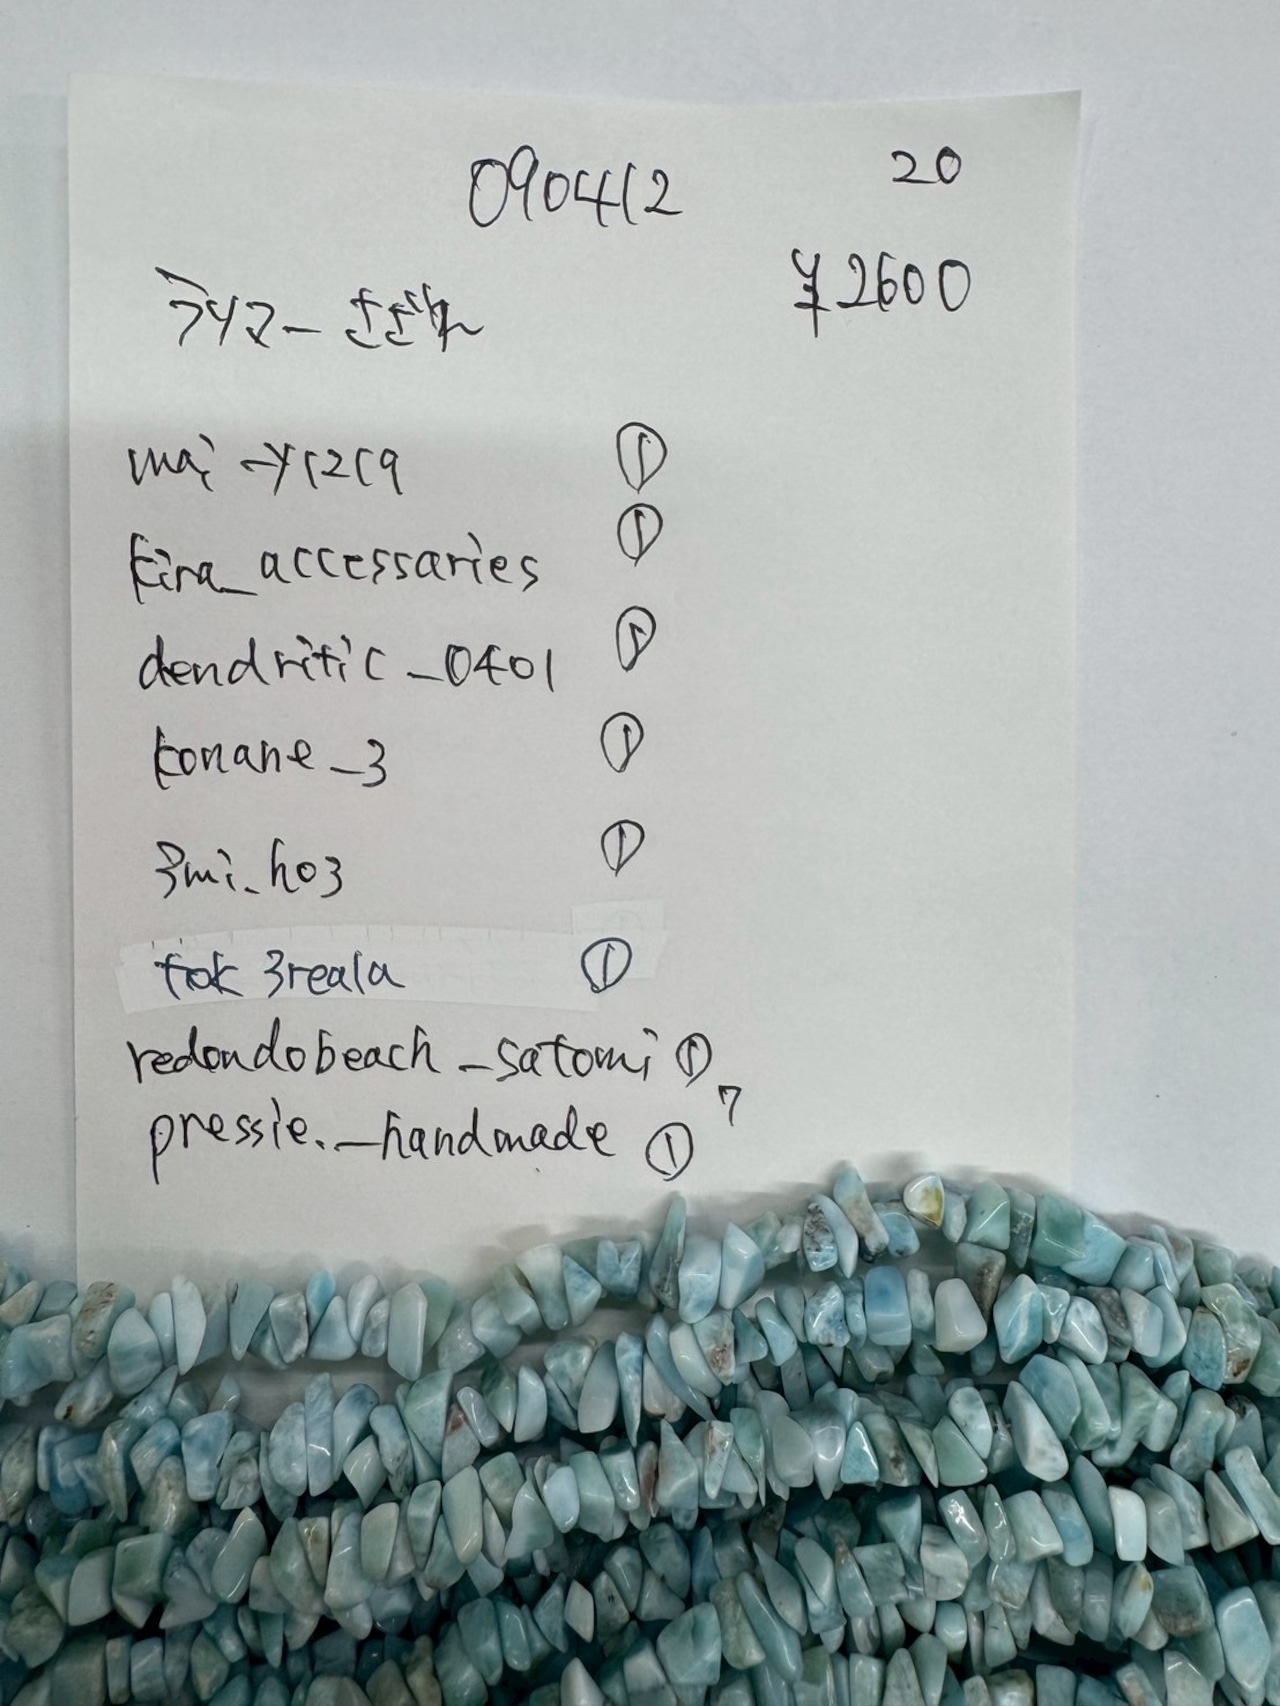 090412 20
¥2600
ラリマー さざれ
mai_y1219 ①
kira_accessaries ①
dendritic_0401 ①
konane_3 ①
3mi_ho3 ①
tok 3reala ①
redondobeach_satomi ①
7
pressie._handmade ①